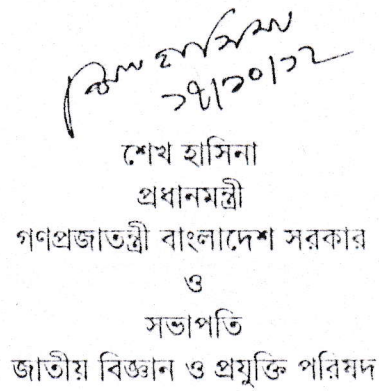 শেখ হাসিনা
১৭/১০/১২
শেখ হাসিনা
প্রধানমন্ত্রী
গণপ্রজাতন্ত্রী বাংলাদেশ সরকার
ও
সভাপতি
জাতীয় বিজ্ঞান ও প্রযুক্তি পরিষদ